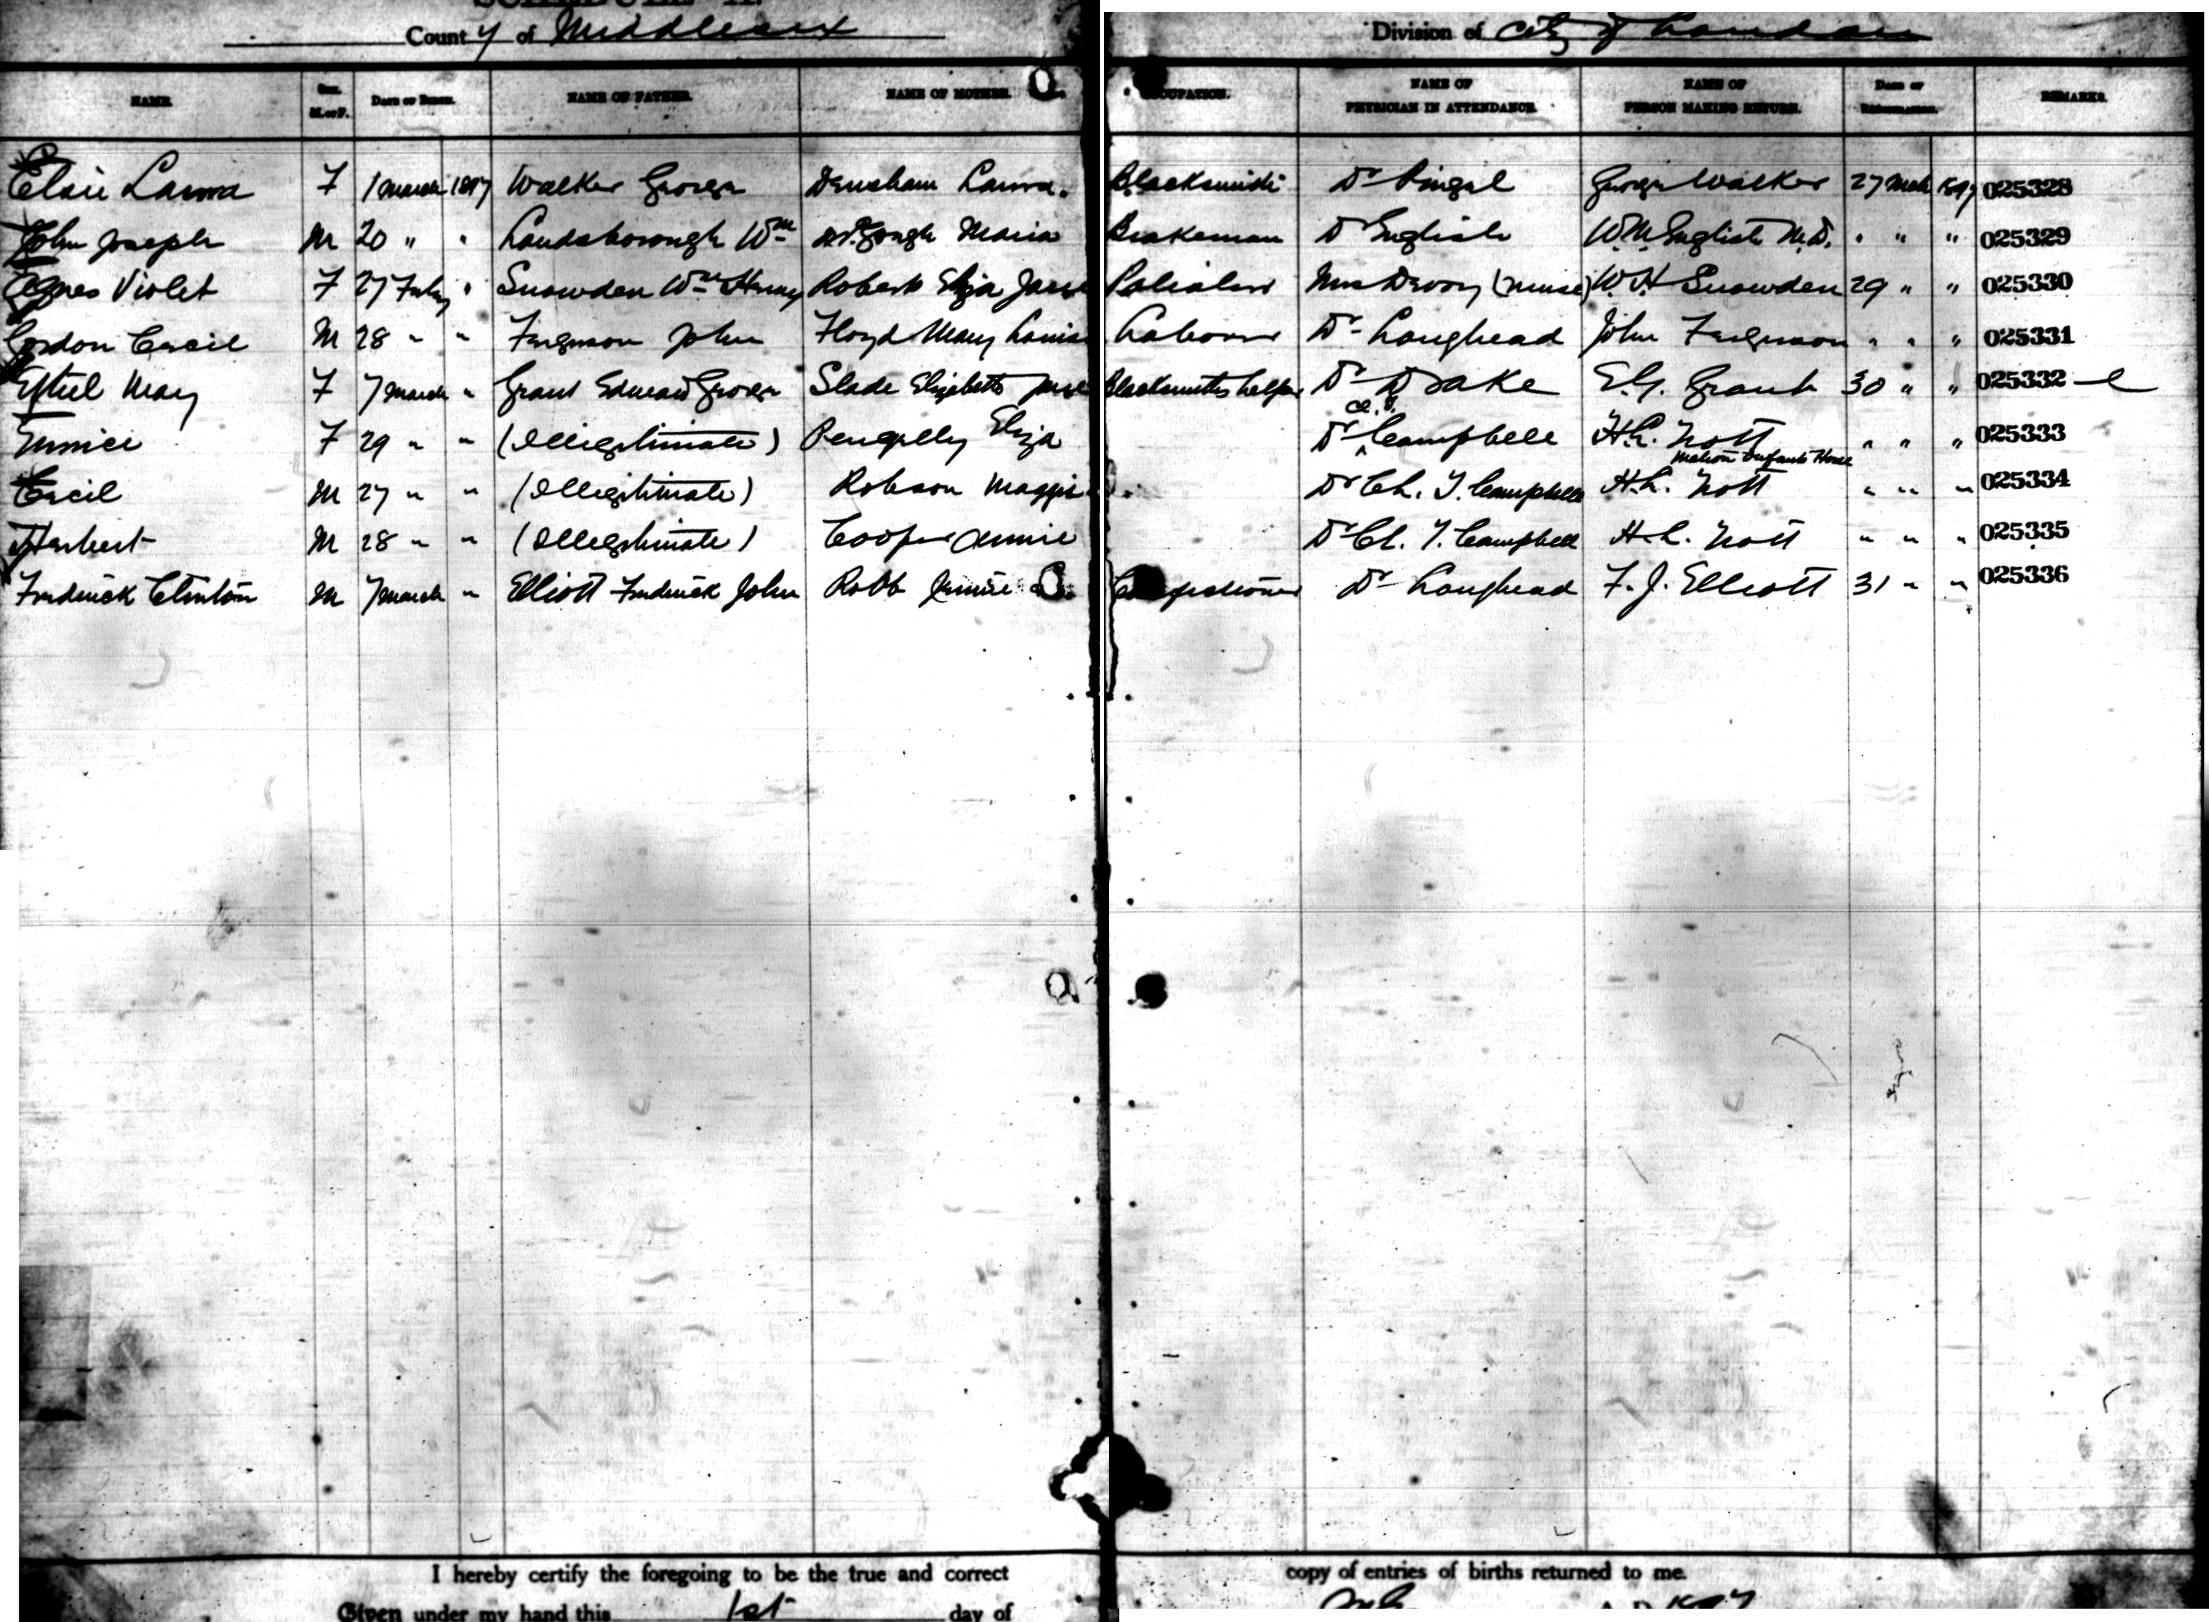 SCHEDULE A.
County of Middlesex Division of City of London
NAME. Sex. M. or F. DATE OF BIRTH. NAME OF FATHER. NAME OF MOTHER. OCCUPATION. NAME OF PHYSICIAN IN ATTENDANCE. NAME OF PERSON MAKING RETURN. DATE OF REGISTRATION. REMARKS.
Elsie Laura F 1 March 1897 Walker George Densham Laura. Blacksmith Dr Pingel George Walker 27 Mch 1897 025328
John Joseph M 20 " " Landsborough Wm McGough Maria Brakeman Dr English W.M. English M.D. " " " 025329
Agnes Violet F 27 Feby " Snowden Wm Henry Roberts Eliza Jane Mrs Devoy (nurse) W.H Snowden 29 " " 025330
Gordon Cecil M 28 " " Ferguson John Floyd Mary Louisa Labourer Dr Loughead John Ferguson " " " 025331
Ethel May F 7 March " Grant Edward George Slade Elizabeth Jane Blacksmiths helper Dr Drake E.G. Grant 30 " " 025332
Eunice F 29 " " (Illegitimate) Pengelly Eliza Dr C.T. Campbell H.L. Nott " " " 025333
Matron Infants Home
Cecil M 27 " " (Illegitimate) Robson Maggie Dr Ch. T. Campbell H.L. Nott " " " 025334
Herbert M 28 " " (Illegitimate) Cooper Annie Dr Ch. T. Campbell H.L. Nott " " " 025335
Frederick Clinton M 7 March " Elliott Frederick John Robb Jennie Dr Loughead F.J. Elliott 31 " " 025336
I hereby certify the foregoing to be the true and correct copy of entries of births returned to me.
Given under my hand this 1st day of A.D. 1897